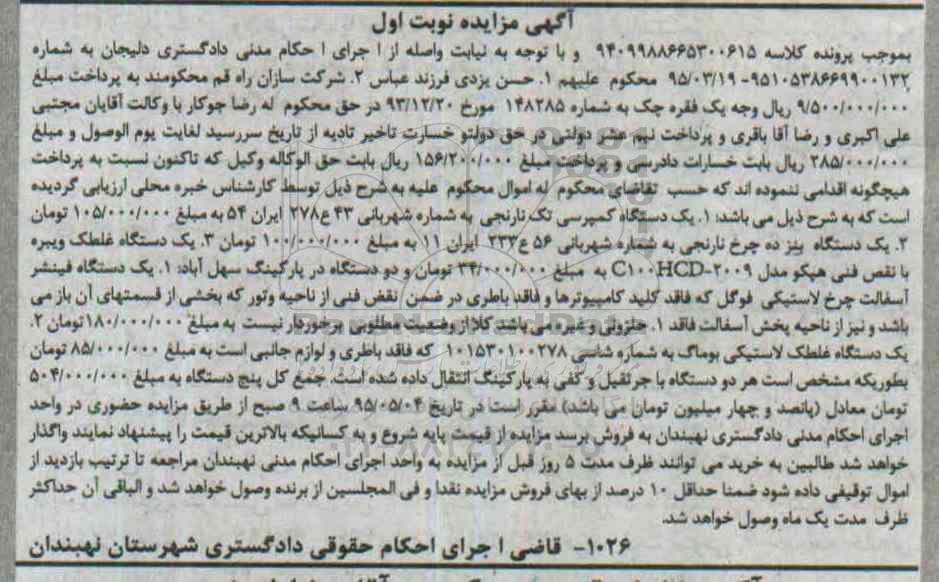 آگهی مزایده نوبت اول
بموجب پرونده کلاسه ۹۴۰۹۹۸۸۶۶۵۳۰۰۶۱۵ و با توجه به نیابت واصله از ا جرای ا حکام مدنی دادگستری دلیجان به شماره
۹۵۱۰۵۳۸۶۶۹۹۰۰۱۳۲- ۹۵/۰۳/۱۹ محکوم علیهم ۱. حسن یزدی فرزند عباس ۲. شرکت سازان راه قم محکومند به پرداخت مبلغ
۹/۵۰۰/۰۰۰/۰۰۰ ریال وجه یک فقره چک به شماره ۱۴۸۲۸۵ مورخ ۹۳/۱۲/۲۰ در حق محکوم له رضا جوکار با وکالت آقایان مجتبی
علی اکبری و رضا آقا باقری و پرداخت نیم عشر دولتی در حق دولتو خسارت تاخیر تادیه از تاریخ سررسید لغایت یوم الوصول و مبلغ
۲۸۵/۰۰۰/۰۰۰ ریال بابت خسارات دادرسی و پرداخت مبلغ ۱۵۶/۲۰۰/۰۰۰ ریال بابت حق الوکاله وکیل که تاکنون نسبت به پرداخت
هیچگونه اقدامی ننموده اند که حسب تقاضای محکوم له اموال محکوم علیه به شرح ذیل توسط کارشناس خبره محلی ارزیابی گردیده
است که به شرح ذیل می باشد: ۱. یک دستگاه کمپرسی تک نارنجی به شماره شهربانی ۴۳ ع۲۷۸ ایران ۵۴ به مبلغ ۱۰۵/۰۰۰/۰۰۰ تومان
۲. یک دستگاه بنز ده چرخ نارنجی به شماره شهربانی ۵۶ ع۲۳۳ ایران ۱۱ به مبلغ ۱۰۰/۰۰۰/۰۰۰ تومان ۳. یک دستگاه غلطک ویبره
با نقص فنی هپکو مدل C۱۰۰HCD-۲۰۰۹ به مبلغ ۳۴/۰۰۰/۰۰۰ تومان و دو دستگاه در پارکینگ سهل آباد: ۱. یک دستگاه فینشر
آسفالت چرخ لاستیکی فوگل که فاقد کلید کامپیوترها و فاقد باطری در ضمن نقض فنی از ناحیه وتور که بخشی از قسمتهای آن باز می
باشد و نیز از ناحیه پخش آسفالت فاقد ۱. حلزونی و غیره می باشد کلا از وضعیت مطلوبی برخوردار نیست به مبلغ ۱۸۰/۰۰۰/۰۰۰تومان ۲.
یک دستگاه غلطک لاستیکی بوماگ به شماره شاسی ۱۰۱۵۳۰۱۰۰۲۷۸ که فاقد باطری و لوازم جانبی است به مبلغ ۸۵/۰۰۰/۰۰۰ تومان
بطوریکه مشخص است هر دو دستگاه با جرثقیل و کفی به پارکینگ انتقال داده شده است. جمع کل پنج دستگاه به مبلغ ۵۰۴/۰۰۰/۰۰۰
تومان معادل (پانصد و چهار میلیون تومان می باشد) مقرر است در تاریخ ۹۵/۰۵/۰۴ ساعت ۹ صبح از طریق مزایده حضوری در واحد
اجرای احکام مدنی دادگستری نهبندان به فروش برسد مزایده از قیمت پایه شروع و به کسانیکه بالاترین قیمت را پیشنهاد نمایند واگذار
خواهد شد طالبین به خرید می توانند ظرف مدت ۵ روز قبل از مزایده به واحد اجرای احکام مدنی نهبندان مراجعه تا ترتیب بازدید از
اموال توقیفی داده شود ضمنا حداقل ۱۰ درصد از بهای فروش مزایده نقدا و فی المجلسین از برنده وصول خواهد شد و الباقی آن حداکثر
ظرف مدت یک ماه وصول خواهد شد.
۱۰۲۶- قاضی ا جرای احکام حقوقی دادگستری شهرستان نهبندان